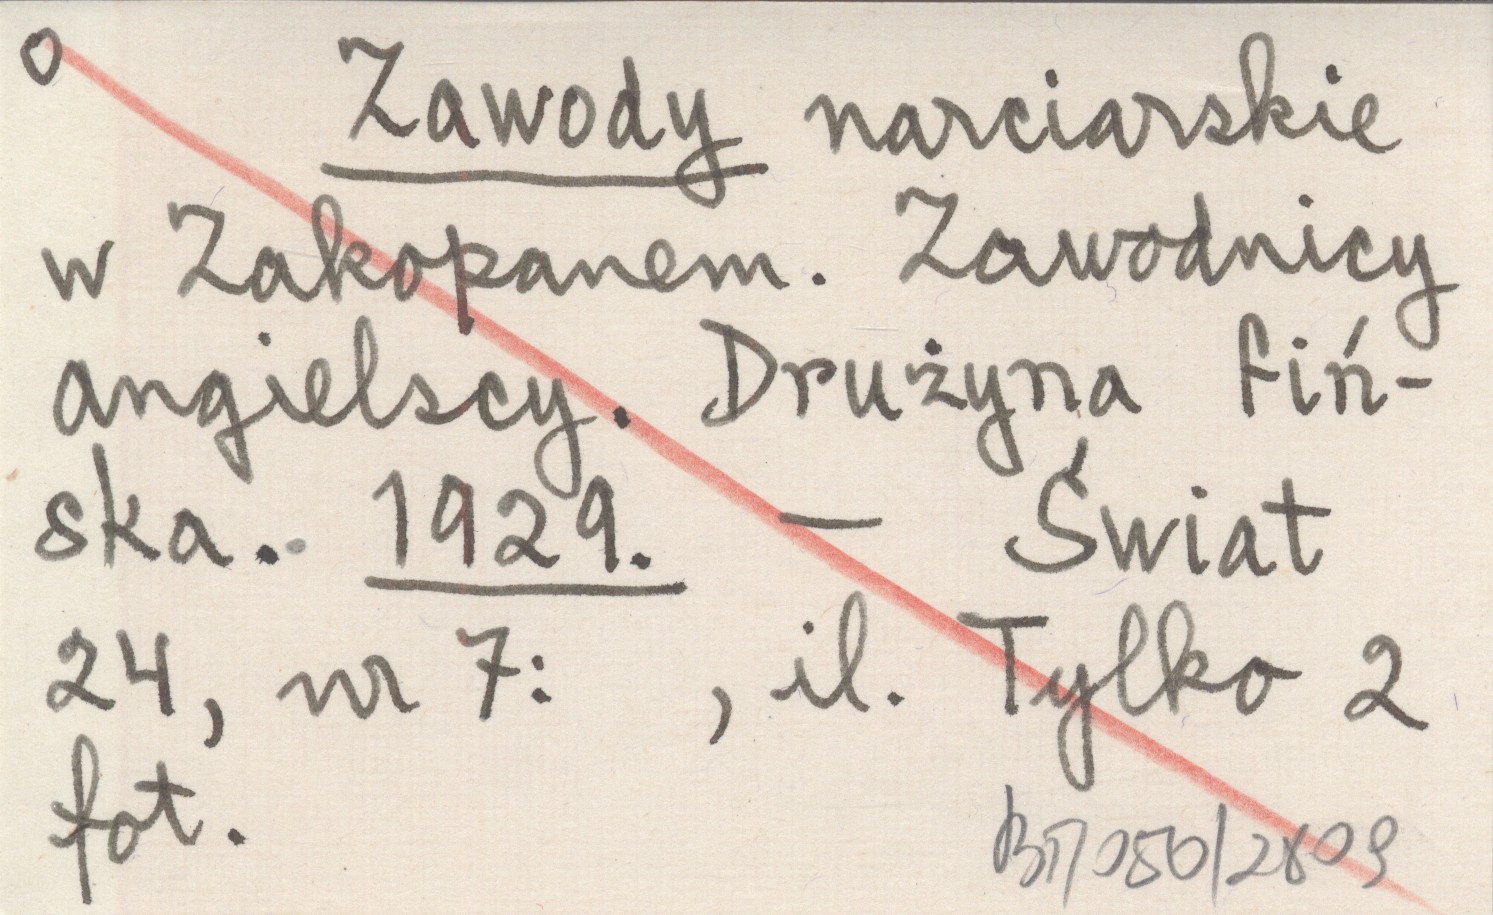 o Zawody narciarskie
w Zakopanem. Zawodnicy
angielscy. Drużyna fiń-
ska. 1929. — Świat
24, nr 7: , il. Tylko 2
fot.